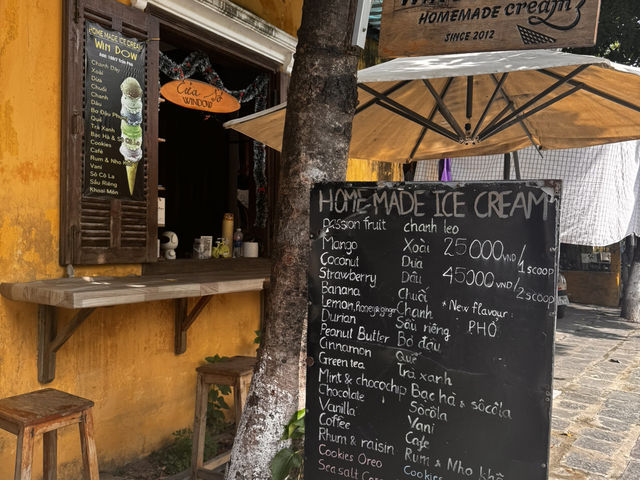 HOMEMADE cream
SINCE 2012
HOMEMADE ICE CREAM
WIN DOW
Chanh Dây
Xoài
Dừa
Chuối
Chanh
Dâu
Bơ Đậu
Quế
Trà Xanh
Bạc Hà &
Cookies
Café
Rum & Nho
Vani
Sô Cô La
Sầu Riêng
Khoai Môn
Cửa Sổ
WINDOW
HOME MADE ICE CREAM
Passion fruit chanh leo
Mango Xoài
Coconut Dừa
Strawberry Dâu
Banana Chuối
Lemon, Honey & ginger Chanh
Durian Sầu riêng
Peanut Butter Bơ đậu
Cinnamon Quế
Green tea Trà xanh
Mint & chocochip Bạc hà & sôcôla
Chocolate Sôcôla
Vanilla Vani
Coffee Cafe
Rhum & raisin Rum & Nho khô
Cookies Oreo Cookies
Sea salt
25000 VND/1 scoop
45000 VND/2 scoop
* New flavour :
PHỞ